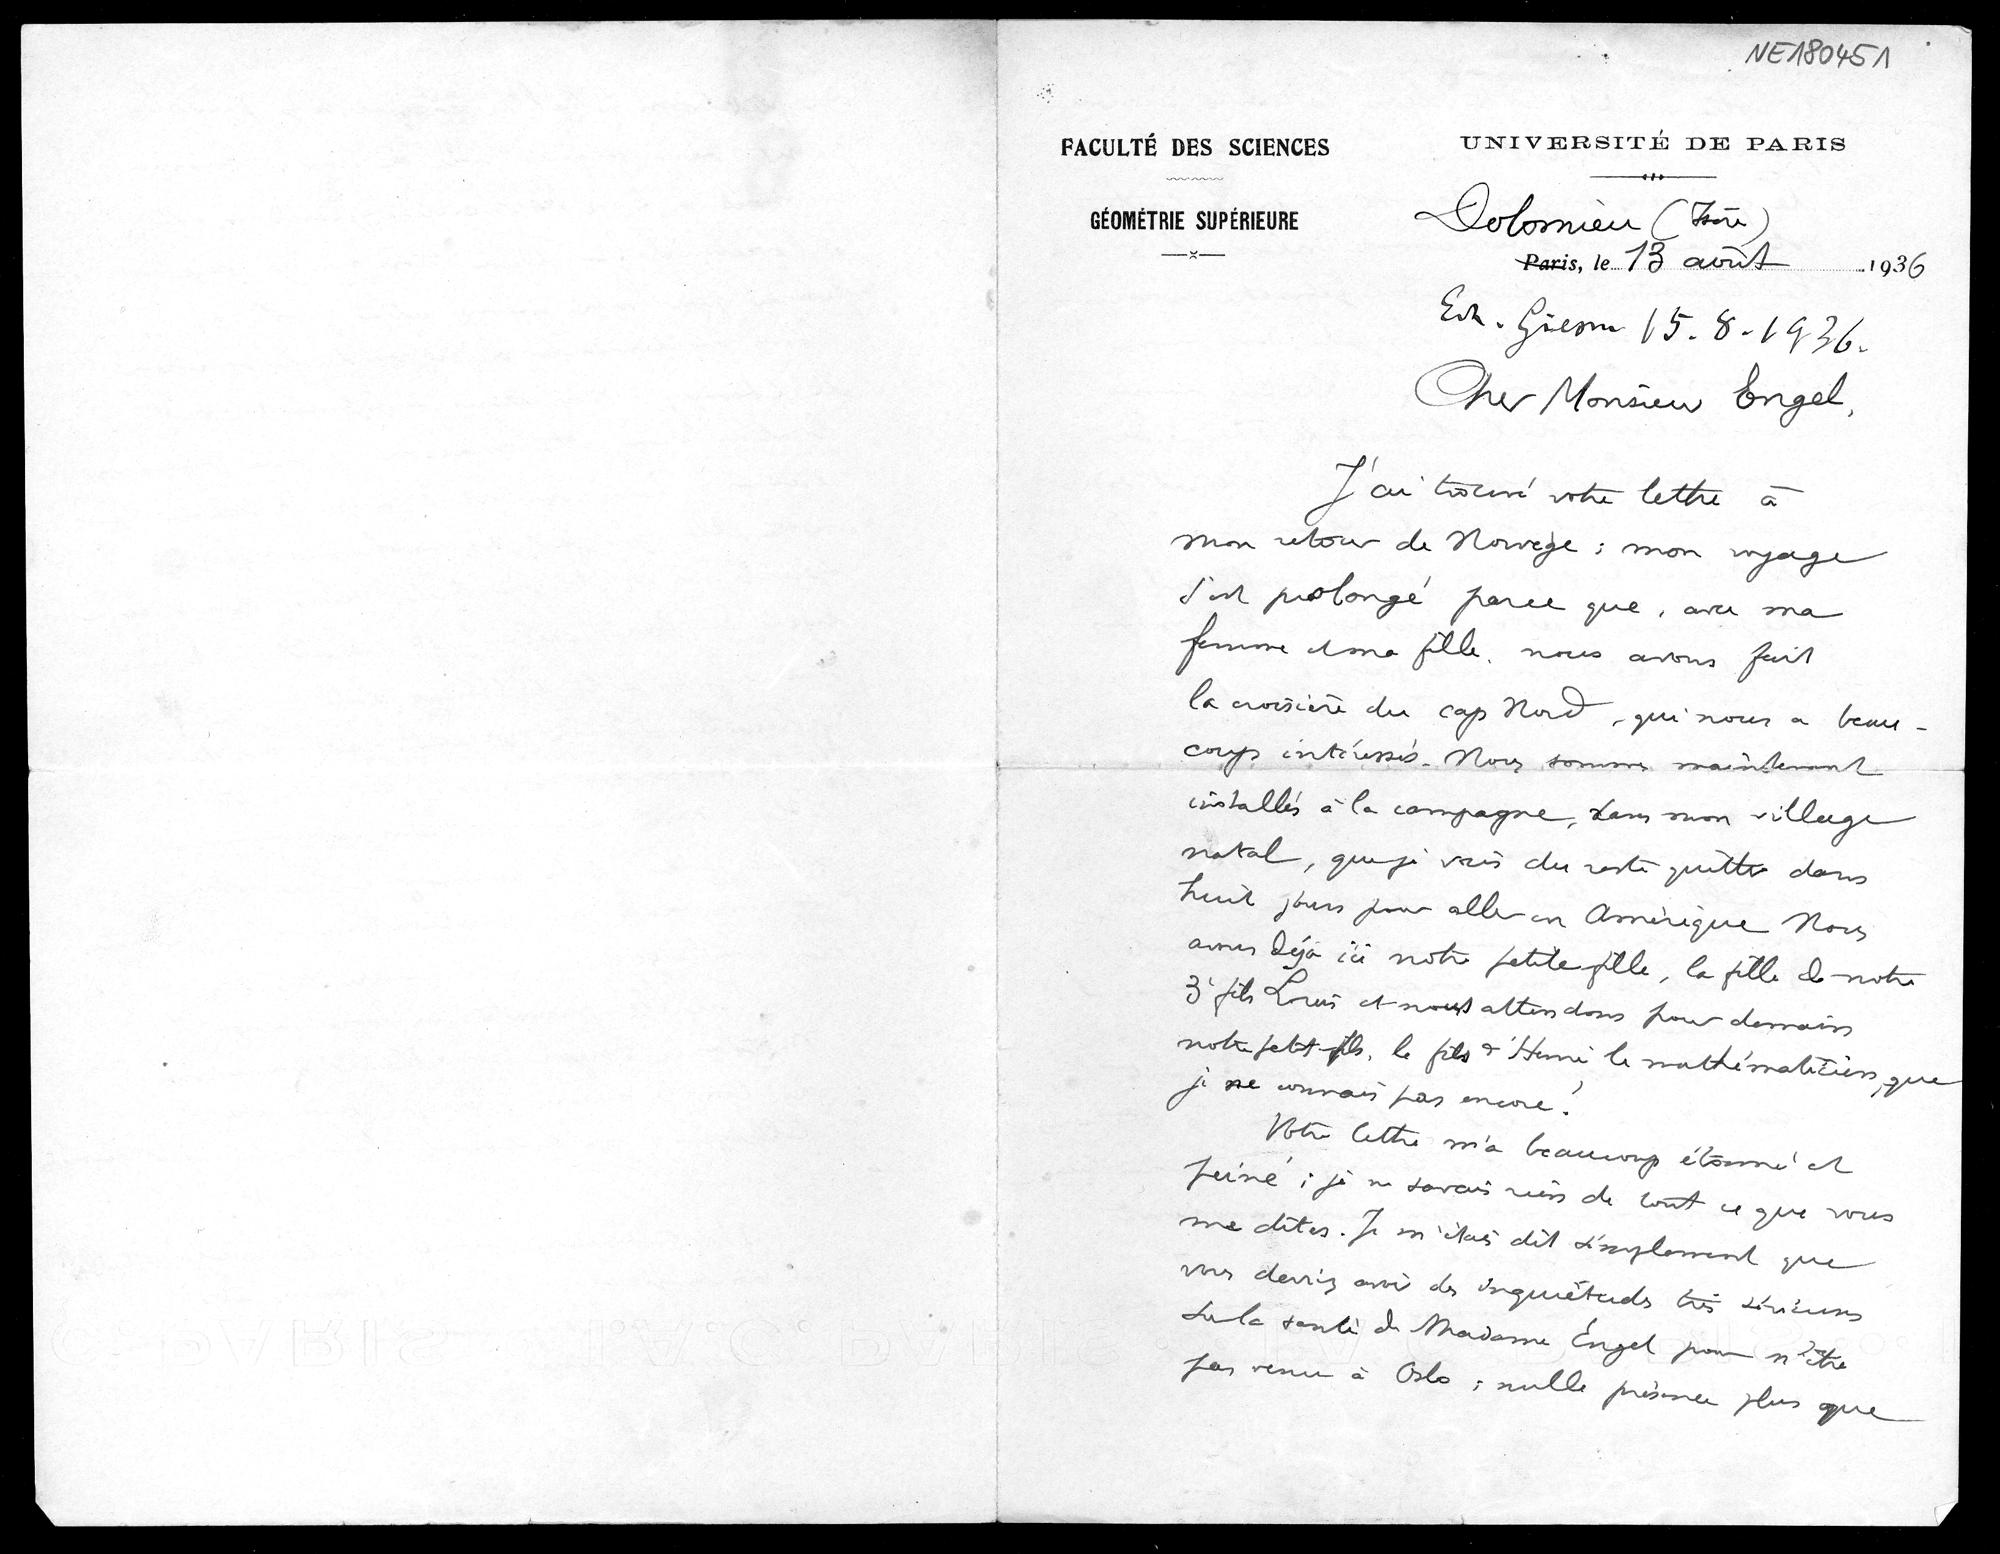 NE180451
FACULTÉ DES SCIENCES
GÉOMÉTRIE SUPÉRIEURE
UNIVERSITÉ DE PARIS
Dolomieu (Isère)
Paris, le 13 août 1936
Erh. Giessen 15.8.1936.
Cher Monsieur Engel,
J'ai trouvé votre lettre à
mon retour de Norvège ; mon voyage
s'est prolongé parce que, avec ma
femme et ma fille, nous avons fait
la croisière du cap Nord, qui nous a beau-
coup intéressés. Nous sommes maintenant
installés à la campagne, dans mon village
natal, que je vais du reste quitter dans
huit jours pour aller en Amérique Nous
avons déjà ici notre petite fille, la fille de notre
3e fils Louis et nous attendons pour demain
notre petit-fils, le fils d'Henri le mathématicien, que
je ne connais pas encore !
Votre lettre m'a beaucoup étonné et
peiné ; je ne savais rien de tout ce que vous
me dites. Je m'étais dit simplement que
vous deviez avoir des inquiétudes très sérieuses
sur la santé de Madame Engel pour n'être
pas venu à Oslo ; nulle présence plus que